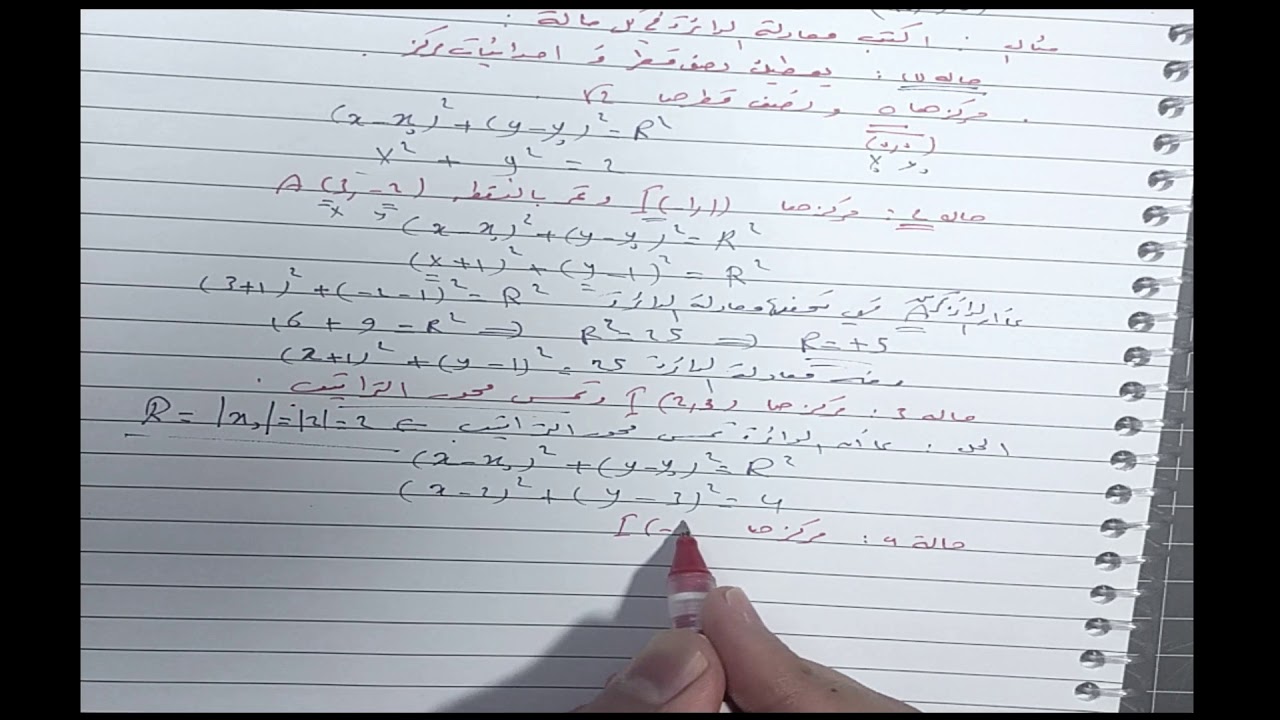 مثال : اكتب معادلة الدائرة في كل حالة :
حالة (1) : يعطينا نصف قطر و احداثيات مركز .
مركزها O و نصف قطرها √2 .
(x-x₀)² + (y-y₀)² = R² (0,0)
x² + y² = 2 x₀ y₀
حالة 2 : مركزها I(-1,1) و تمر بالنقطة A(3,-2)
x y
(x-x₀)² + (y-y₀)² = R²
(x+1)² + (y-1)² = R²
بما أن الدائرة تمر من A فهي تحقق معادلة الدائرة (3+1)² + (-2-1)² = R²
16 + 9 = R² ⟹ R² = 25 ⟹ R = +5
ومنه معادلة الدائرة (x+1)² + (y-1)² = 25
حالة 3 : مركزها I(2,3) و تمس محور التراتيب .
الحل : بما أن الدائرة تمس محور التراتيب ⟸ R = |x₀| = |2| = 2
(x-x₀)² + (y-y₀)² = R²
(x-2)² + (y-3)² = 4
حالة 4 : مركزها I(-